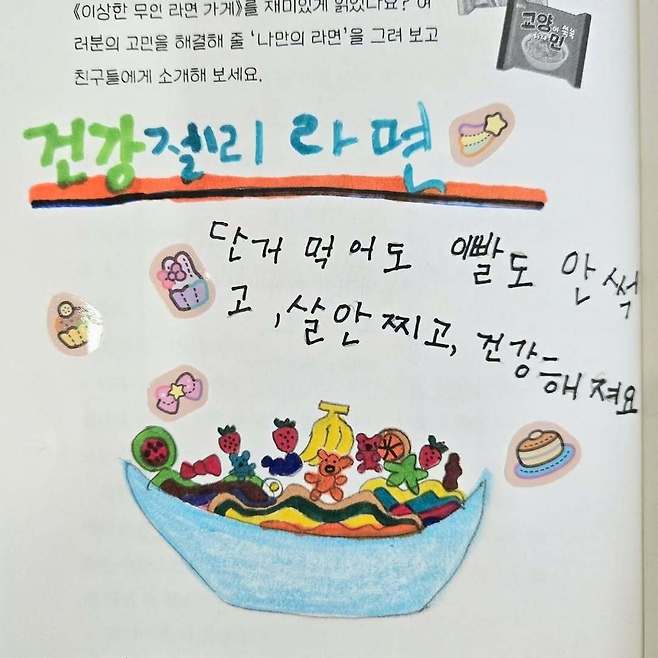 《이상한 무인 라면 가게》를 재미있게 읽었나요? 여
러분의 고민을 해결해 줄 '나만의 라면'을 그려 보고
친구들에게 소개해 보세요.
교양이 쑥쑥
라면
건강젤리 라면
단거 먹어도 이빨도 안 썩
고, 살 안 찌고, 건강
해져요